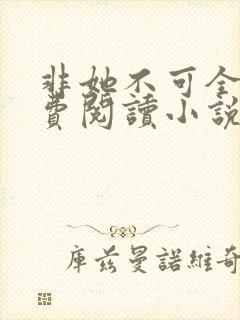 非她不可全
費閱讀小說
庫茲曼諾維奇